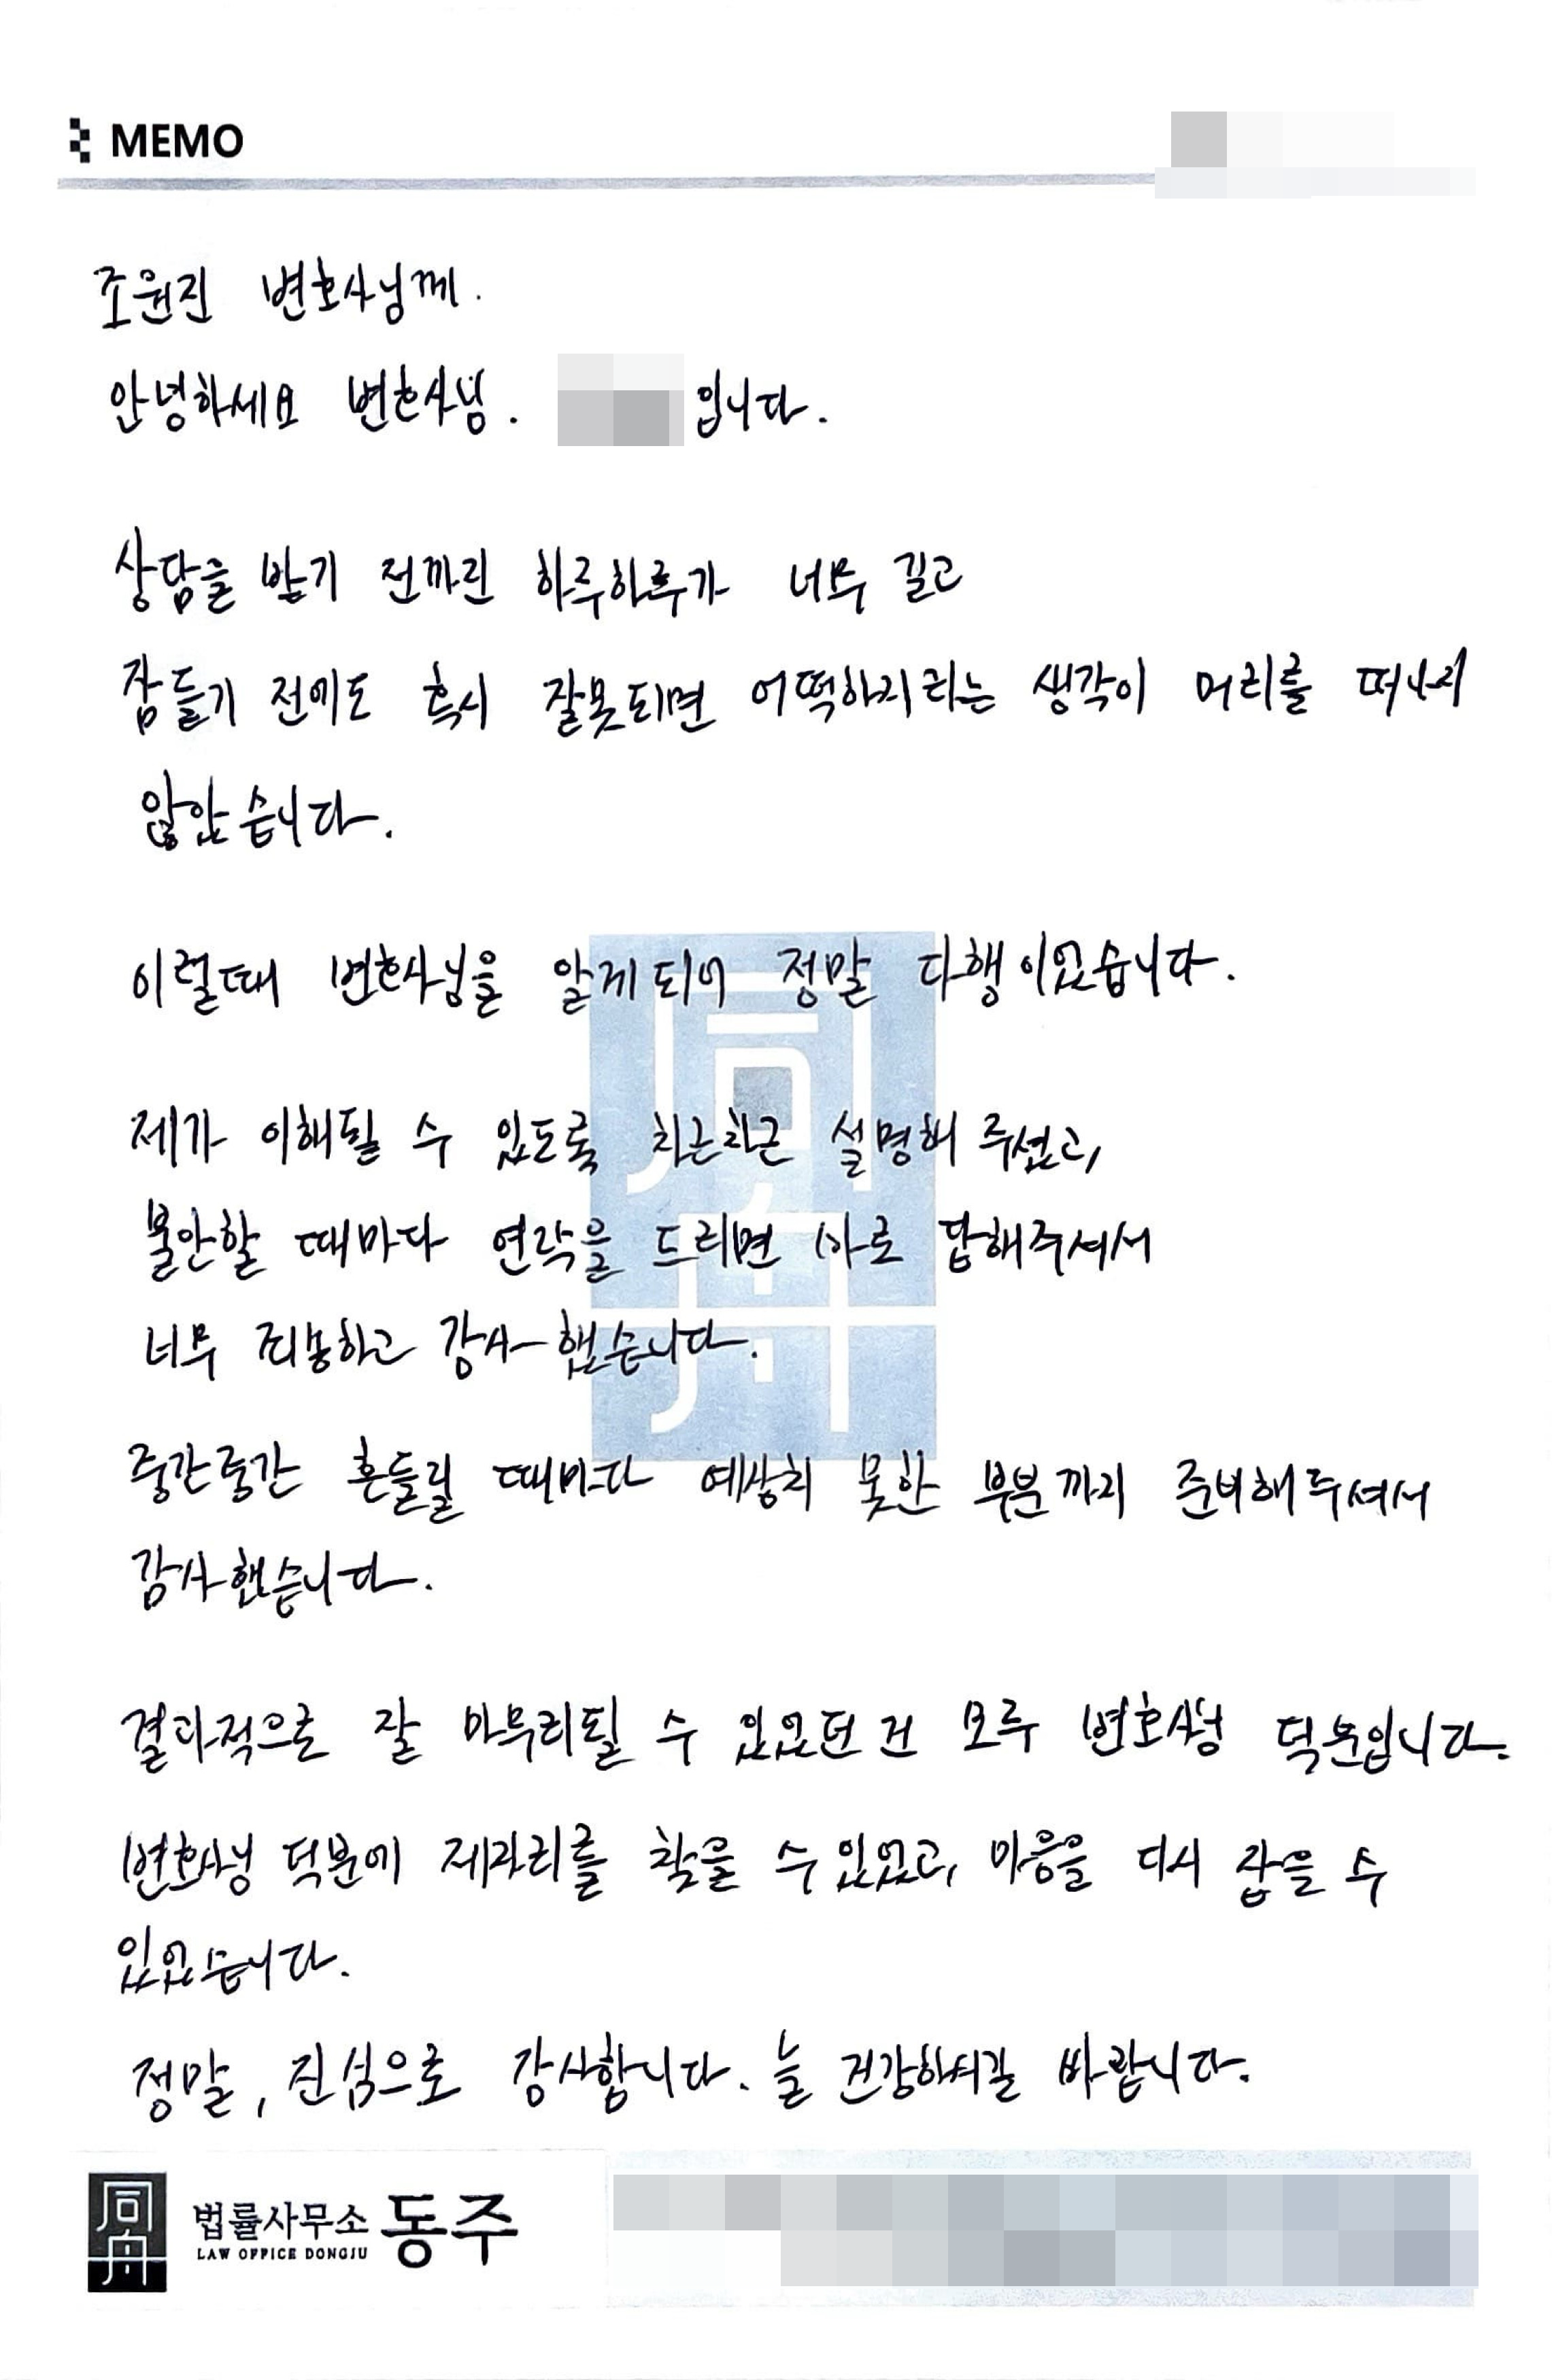 MEMO
조원진 변호사님께.
안녕하세요 변호사님. 입니다.
상담을 받기 전까진 하루하루가 너무 길고
잠들기 전에도 혹시 잘못되면 어떡하지라는 생각이 머리를 떠나지
않았습니다.
이럴때 변호사님을 알게되어 정말 다행이었습니다.
제가 이해될 수 있도록 차근차근 설명해 주셨고,
불안할 때마다 연락을 드리면 바로 답해주셔서
너무 죄송하고 감사했습니다.
중간중간 흔들릴 때마다 예상치 못한 부분까지 준비해주셔서
감사했습니다.
결과적으로 잘 마무리될 수 있었던 건 모두 변호사님 덕분입니다.
변호사님 덕분에 제자리를 찾을 수 있었고, 마음을 다시 잡을 수
있었습니다.
정말, 진심으로 감사합니다. 늘 건강하시길 바랍니다.
同舟
법률사무소 동주
LAW OFFICE DONGJU